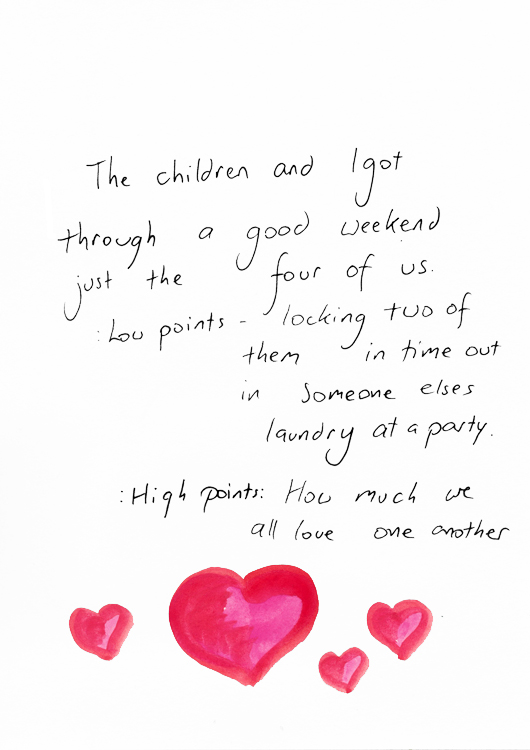 The children and I got
through a good weekend
just the four of us.
: Low points - locking two of
them in time out
in someone elses
laundry at a party.
: High points: How much we
all love one another